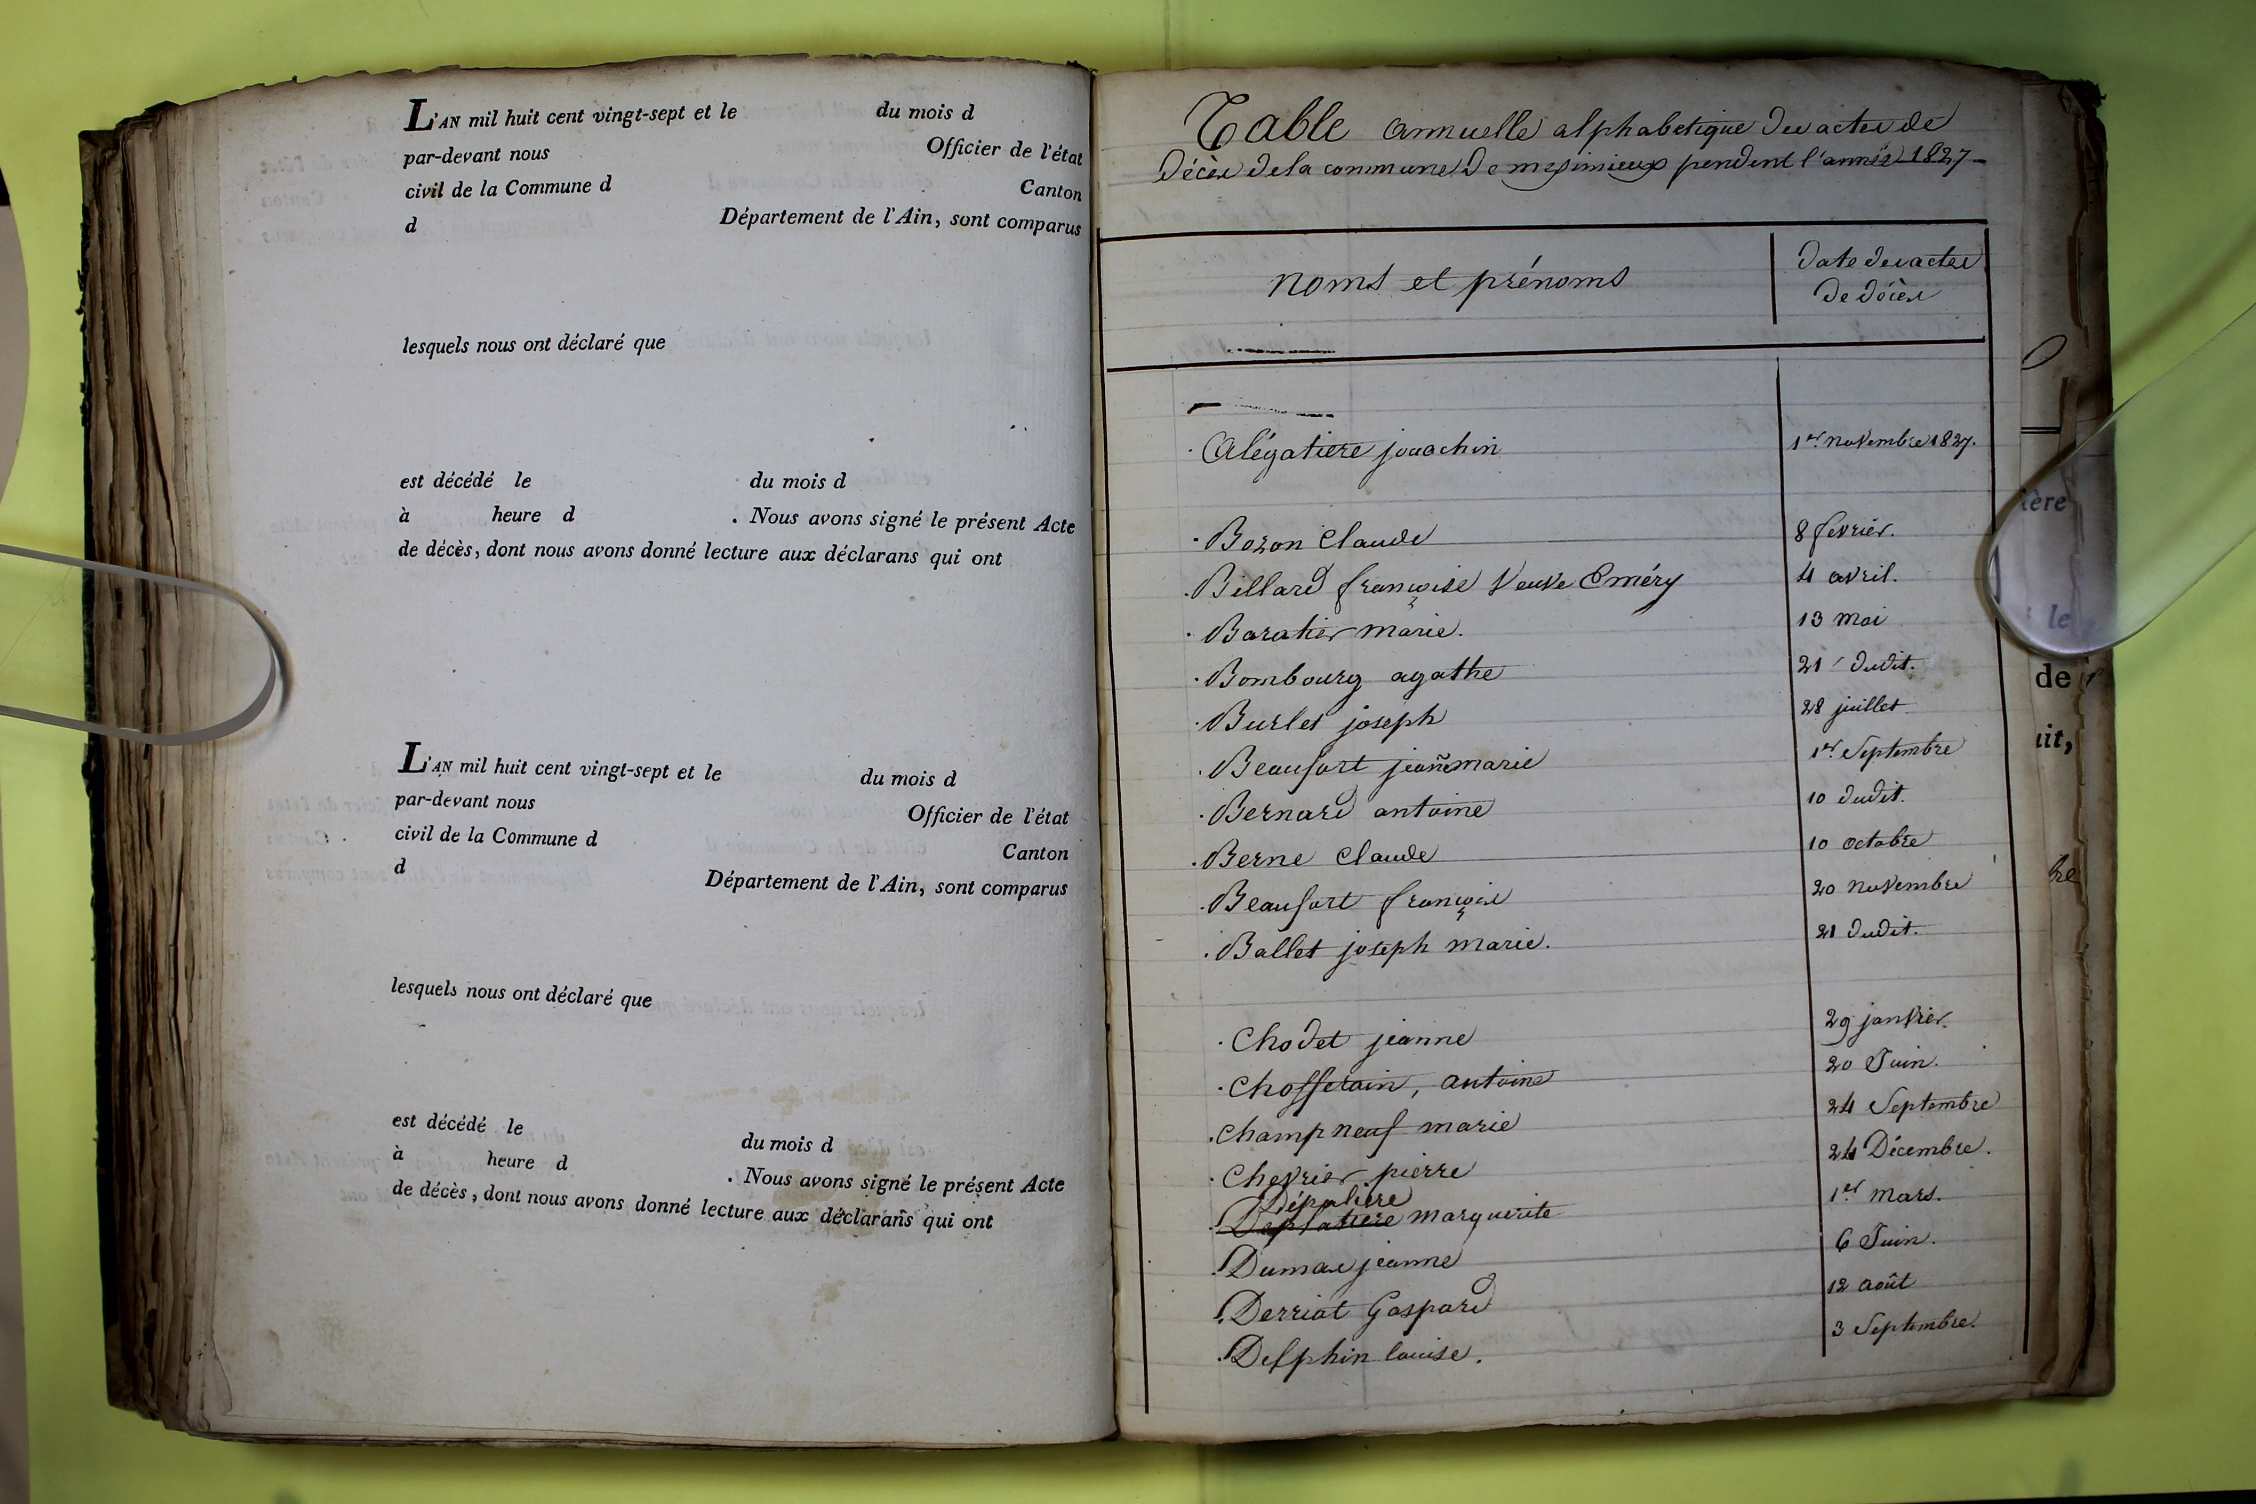 L'AN mil huit cent vingt-sept et le du mois d
par-devant nous Officier de l'état
civil de la Commune d Canton
d Département de l'Ain, sont comparus
lesquels nous ont déclaré que
est décédé le du mois d
à heure d . Nous avons signé le présent Acte
de décès, dont nous avons donné lecture aux déclarans qui ont
L'AN mil huit cent vingt-sept et le du mois d
par-devant nous Officier de l'état
civil de la Commune d Canton
d Département de l'Ain, sont comparus
lesquels nous ont déclaré que
est décédé le du mois d
à heure d . Nous avons signé le présent Acte
de décès, dont nous avons donné lecture aux déclarans qui ont
Table annuelle alphabetique des actes de
Décès de la commune De meximieux pendent l'année 1827
noms et prénoms
Date des actes
De décès
Alégatiere jouachin 1er novembre 1827.
Bozon Claude 8 fevrier.
Billard françoise Veuve Eméry 4 avril.
Baratier marie. 13 mai
Bombourg agathe 21 dudit.
Burlet joseph 28 juillet
Beaufort jeanemarie 1er Septembre
Bernard antoine 10 dudit.
Berne Claude 10 octobre
Beaufort françoise 20 novembre
Ballet joseph marie. 21 dudit.
Chodet jeanne 29 janvier.
Chosserain, antoine 20 Juin.
Champneuf marie 24 Septembre
Chevrier pierre 24 Décembre.
Dépalière
marguerite 1er mars.
Dumas jeanne 6 Juin.
Derriat Gaspard 12 août
Delphin louise. 3 Septembre.
ière
le
de
uit,
he